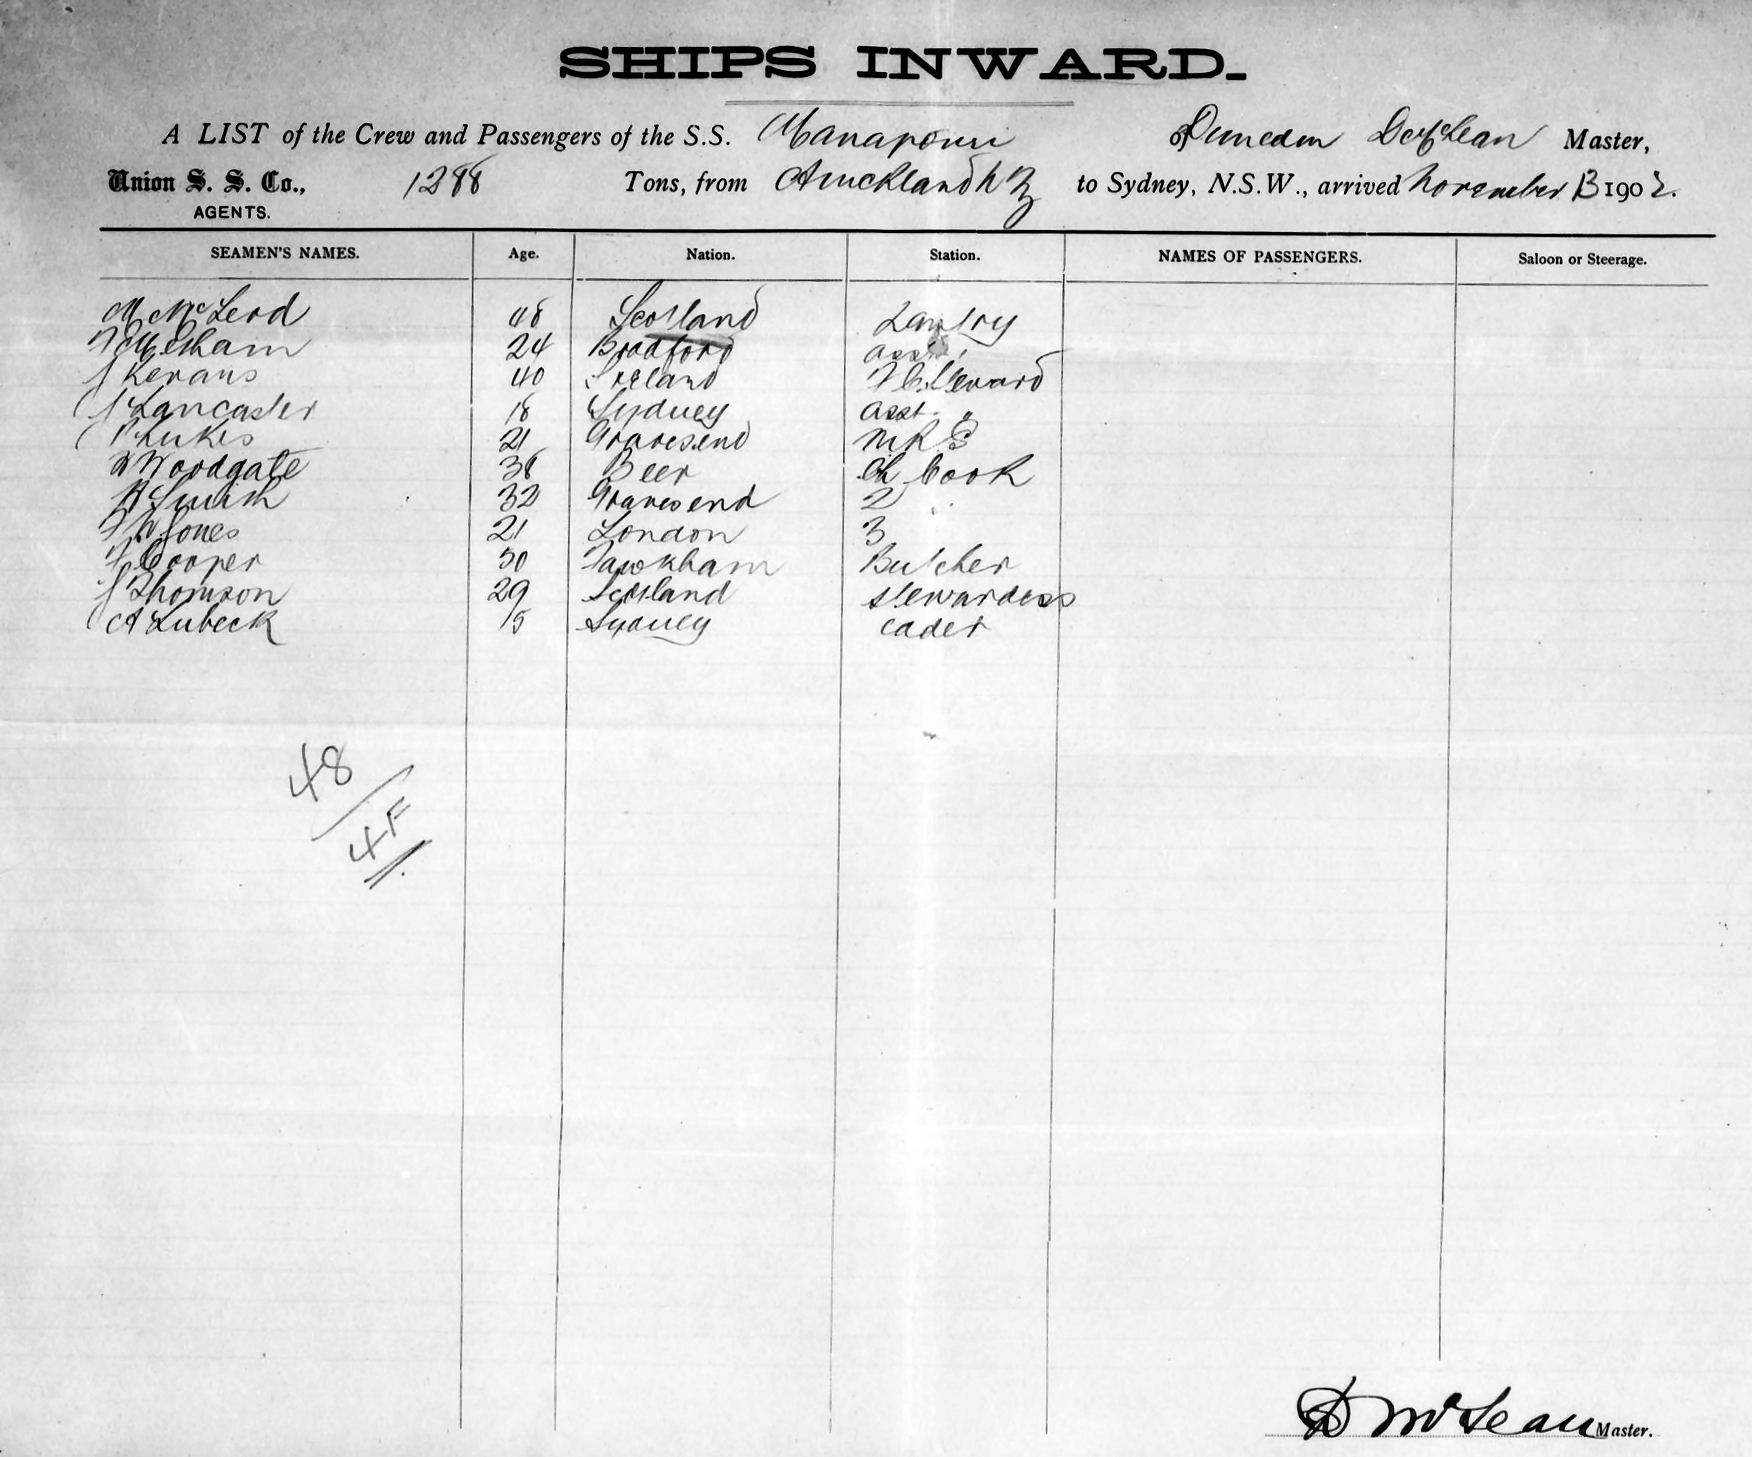 SHIPS INWARD.
A LIST of the Crew and Passengers of the S.S. Manapouri of Dunedin D McLean Master,
Union S. S. Co., 1288 Tons, from Auckland N Z to Sydney, N.S.W., arrived November 13 1902.
AGENTS.
SEAMEN'S NAMES. Age. Nation. Station. NAMES OF PASSENGERS. Saloon or Steerage.
M McLeod 48 Scotland Pantry
24 Bradford asst "
J Kerans 40 Ireland F C Steward
J Lancaster 18 Sydney asst "
Lukes 21 Gravesend M R S
W Woodgate 38 Beer Ch Cook
H Smith 32 Gravesend 2 "
F W Jones 21 London 3
F Cooper 30 Fawkham Butcher
J Thomson 29 Scotland Stewardess
A Lubeck 15 Sydney cadet
48
4F
D McLean Master.